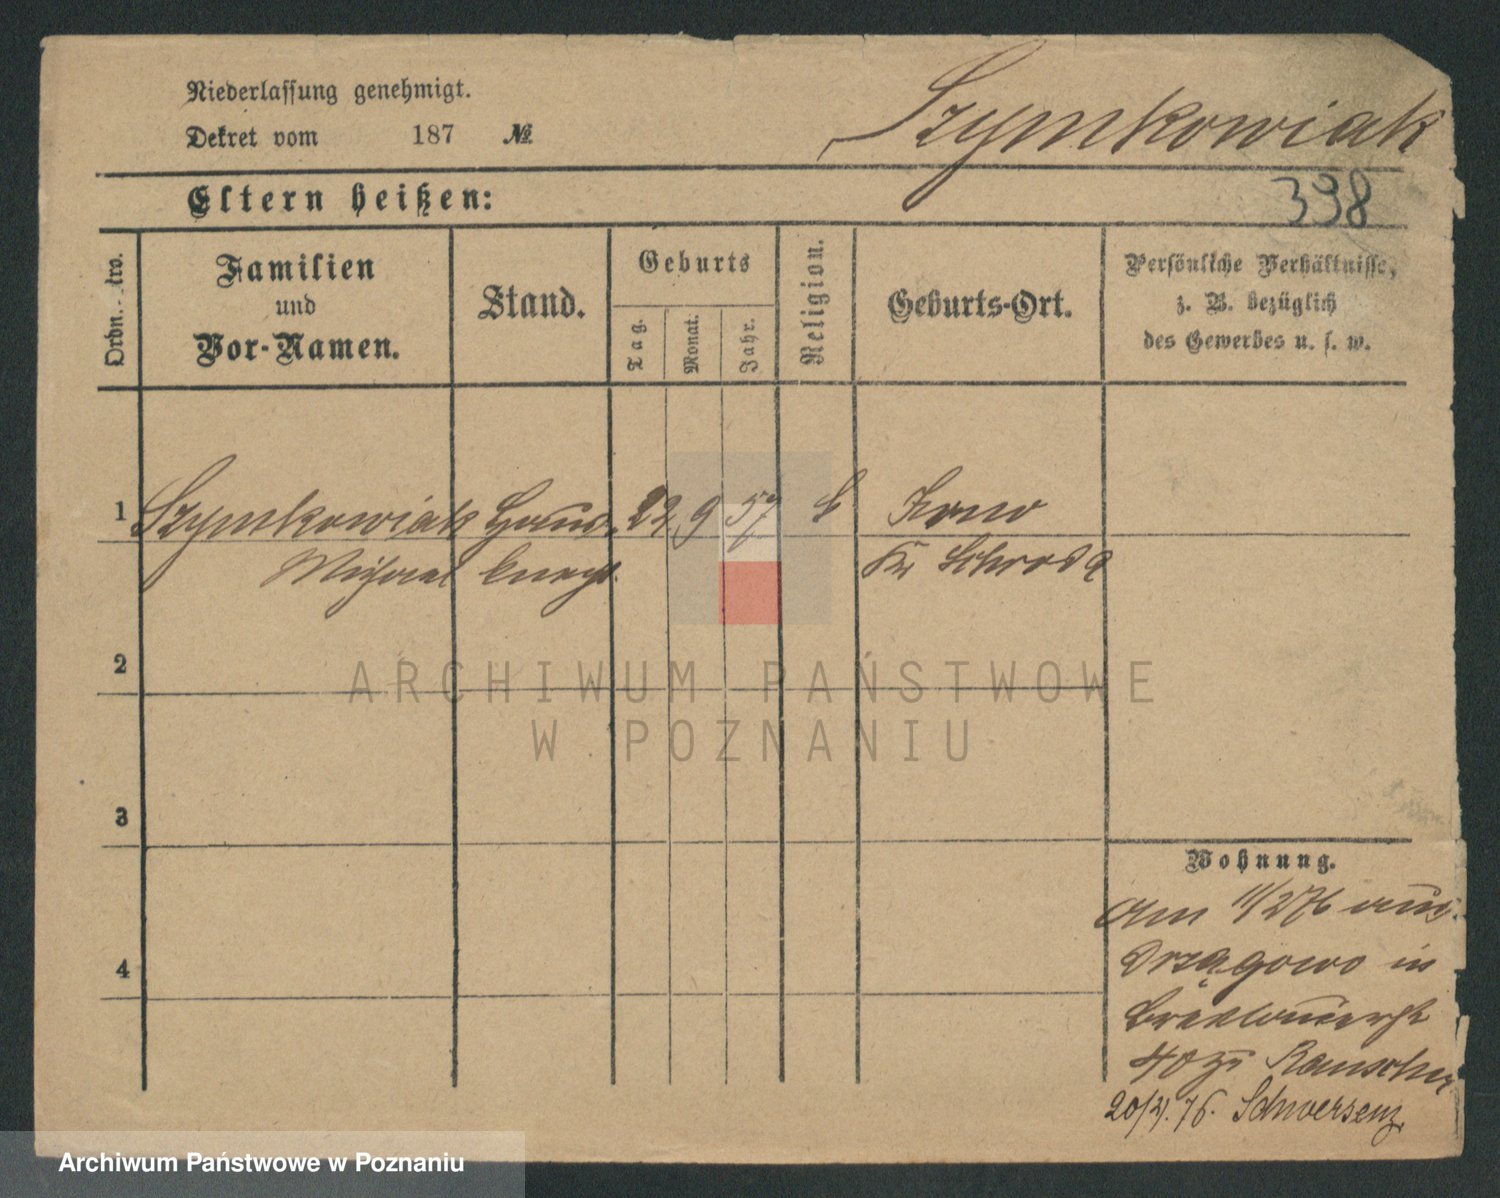 Niederlassung genehmigt.
Dekret vom 187 №
Szymkowiak
398
Eltern heißen:
Familien
und
Vor-Namen.
Stand.
Geburts
Tag.
Monat.
Jahr.
Religion.
Geburts-Ort.
Persönliche Verhältnisse,
z. B. bezüglich
des Gewerbes u. s. w.
1 Szymkowiak Haus- 9 57
knecht Kr Schroda
2
ARCHIWUM PAŃSTWOWE
W POZNANIU
3
4
Wohnung.
Am 11/2 76 aus
Drzązgowo in
40
20/2. 76. Schwersenz
Archiwum Państwowe w Poznaniu